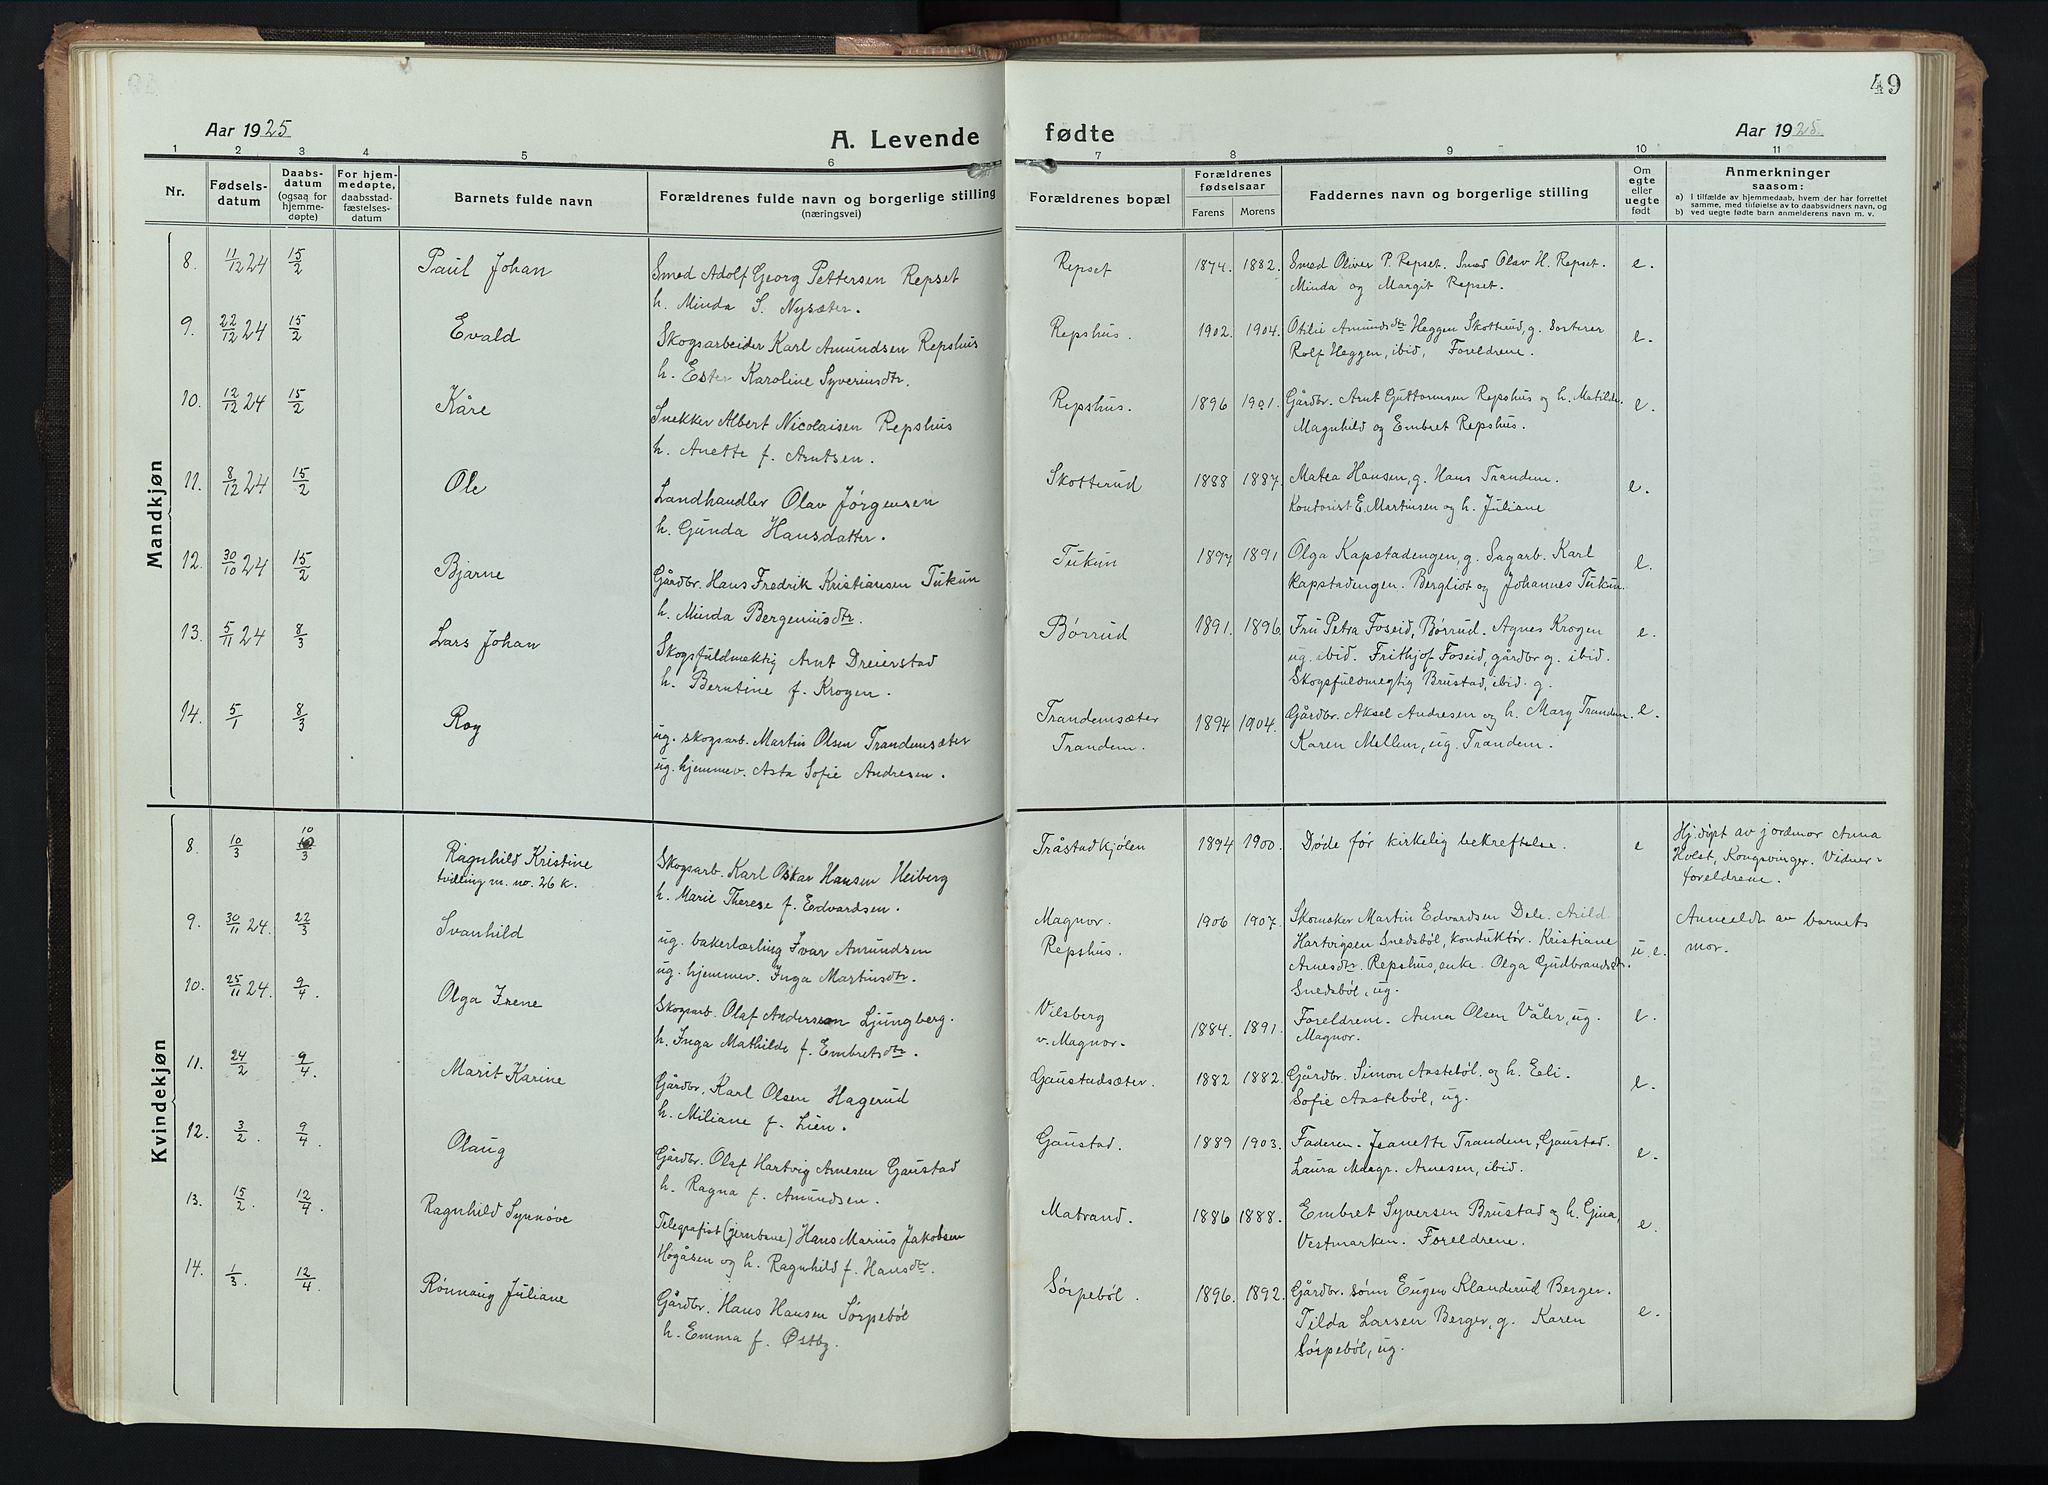 49
Aar 1925
A. Levende
fødte
Aar 1925.
1 2 3 4 5 6 7 8 9 10 11
Nr.
Fødsels-
datum
Daabs-
datum
(ogsaa for
hjemme-
døpte)
For hjem-
medøpte,
daabsstad-
fæstelses-
datum
Barnets fulde navn
Forældrenes fulde navn og borgerlige stilling
(næringsvei)
Forældrenes bopæl
Forældrenes
fødselsaar
Farens Morens
Faddernes navn og borgerlige stilling
Om
egte
eller
uegte
født
Anmerkninger
saasom:
a) I tilfælde av hjemmedaab, hvem der har forrettet
samme, med tilføielse av to daabsvidners navn, og
b) ved uegte fødte barn anmelderens navn m. v.
Mandkjøn
8. 11/12 24 15/2 Paul Johan
Smed Adolf Georg Pettersen Repset
h. Minda S. Nysæter.
Repset 1874. 1882.
Smed Oliver P. Repset. Smed Olav H. Repset.
Minda og Margit Repset.
e.
9. 22/12 24 15/2 Evald
Skogsarbeider Karl Amundsen Repshus
h. Ester Karoline Syverinsdtr.
Repshus. 1902. 1904.
Otilie Amundsdtr Heggen Skotterud, g. Sorterer
Rolf Heggen, ibid, Foreldrene.
e.
10. 12/12 24 15/2 Kåre
Snekker Albert Nicolaisen Repshus
h. Anette f. Arntsen.
Repshus. 1896 1901.
Gårdbr. Arnt Guttormsen Repshus og h. Matilde.
Magnhild og Embret Repshus.
e.
11. 8/12 24 15/2 Ole
Landhandler Olav Jørgensen
h. Gunda Hansdatter.
Skotterud 1888 1887
Matea Hansen, g. Hans Trandem.
Kontorist E. Martinsen og h. Juliane
e.
12. 30/10 24 15/2 Bjarne
Gårdbr. Hans Fredrik Kristiansen Tukun
h. Minda Bergeniusdtr.
Tukun 1897 1891
Olga Kapstadengen, g. Sagarb. Karl
Kapstadengen. Bergliot og Johannes Tukun.
e.
13. 5/11 24 8/3 Lars Johan
Skogsfuldmektig Arnt Dreierstad
h. Berntine f. Krogen.
Børrud 1891. 1896.
Fru Petra Foseid, Børrud. Agnes Krogen
ug. ibid. Frithjof Foseid, gårdbr g. ibid.
Skogsfuldmegtig Brustad, ibid. g.
e.
14. 5/1 8/3 Roy
ug. skogsarb. Martin Olsen Trandemsæter
ug. hjemmev. Asta Sofie Andresen.
Trandemsæter
Trandem. 1894 1904.
Gårdbr. Aksel Andresen og h. Mary Trandem.
Karen Mellem, ug. Trandem.
e.
Kvindekjøn
8. 10/3 10/3 Ragnhild Kristine
tvilling m. no. 26 k.
Skogsarb. Karl Oskar Hansen Heiberg
h. Marie Therese f. Edvardsen.
Tråstadkjølen 1894 1900.
Døde før kirkelig bekreftelse.
e
Hj. døpt av jordmor Anna
Holst, Kongsvinger. Vidner
foreldrene.
9. 30/11 24. 22/3 Svanhild
ug. bakerlærling Ivar Amundsen
ug. hjemmev. Inga Martinsdtr.
Magnor.
Repshus. 1906 1907.
Skomaker Martin Edvardsen Dele. Arild
Hartvigsen Snedsbøl, konduktør. Kristiane
Arnesdtr. Repshus, enke. Olga Gudbrandsdtr.
Snedsbøl, ug.
u. e.
Anmeldt av barnets
mor.
10. 25/11 24. 9/4. Olga Irene
Skogsarb. Olaf Anderssen Ljungberg.
h. Inga Mathilde f. Embretsdtr.
Vilsberg
v. Magnor. 1884. 1891.
Foreldrene. Anna Olsen Våler, ug.
Magnor.
e.
11. 24/2 9/4. Marit Karine
Gårdbr. Karl Olsen Hagerud
h. Miliane f. Lien.
Gaustadsæter. 1882 1882.
Gårdbr. Simon Aastebøl. og h. Eli.
Sofie Aastebøl, ug.
e.
12. 3/2. 9/4. Olaug
Gårdbr. Olaf Hartvig Arnesen Gaustad
h. Ragna f. Amundsen.
Gaustad. 1889 1903.
Faderen. Jeanette Trandem, Gaustad.
Laura Margr. Arnesen, ibid.
e.
13. 15/2. 12/4. Ragnhild Synnøve
Telegrafist (jernbane) Hans Marius Jakobsen
Høgåsen og h. Ragnhild f. Hansdtr.
Matrand. 1886 1888.
Embret Syversen Brustad og h. Gina,
Vestmarken. Foreldrene.
e.
14. 1/3. 12/4. Rønnaug Juliane
Gårdbr. Hans Hansen Sørpebøl
h. Emma f. Østby.
Sørpebøl. 1896. 1892.
Gårdbr. sønn Eugen Klanderud Berger.
Tilda Larsen Berger, g. Karen
Sørpebøl, ug.
e.